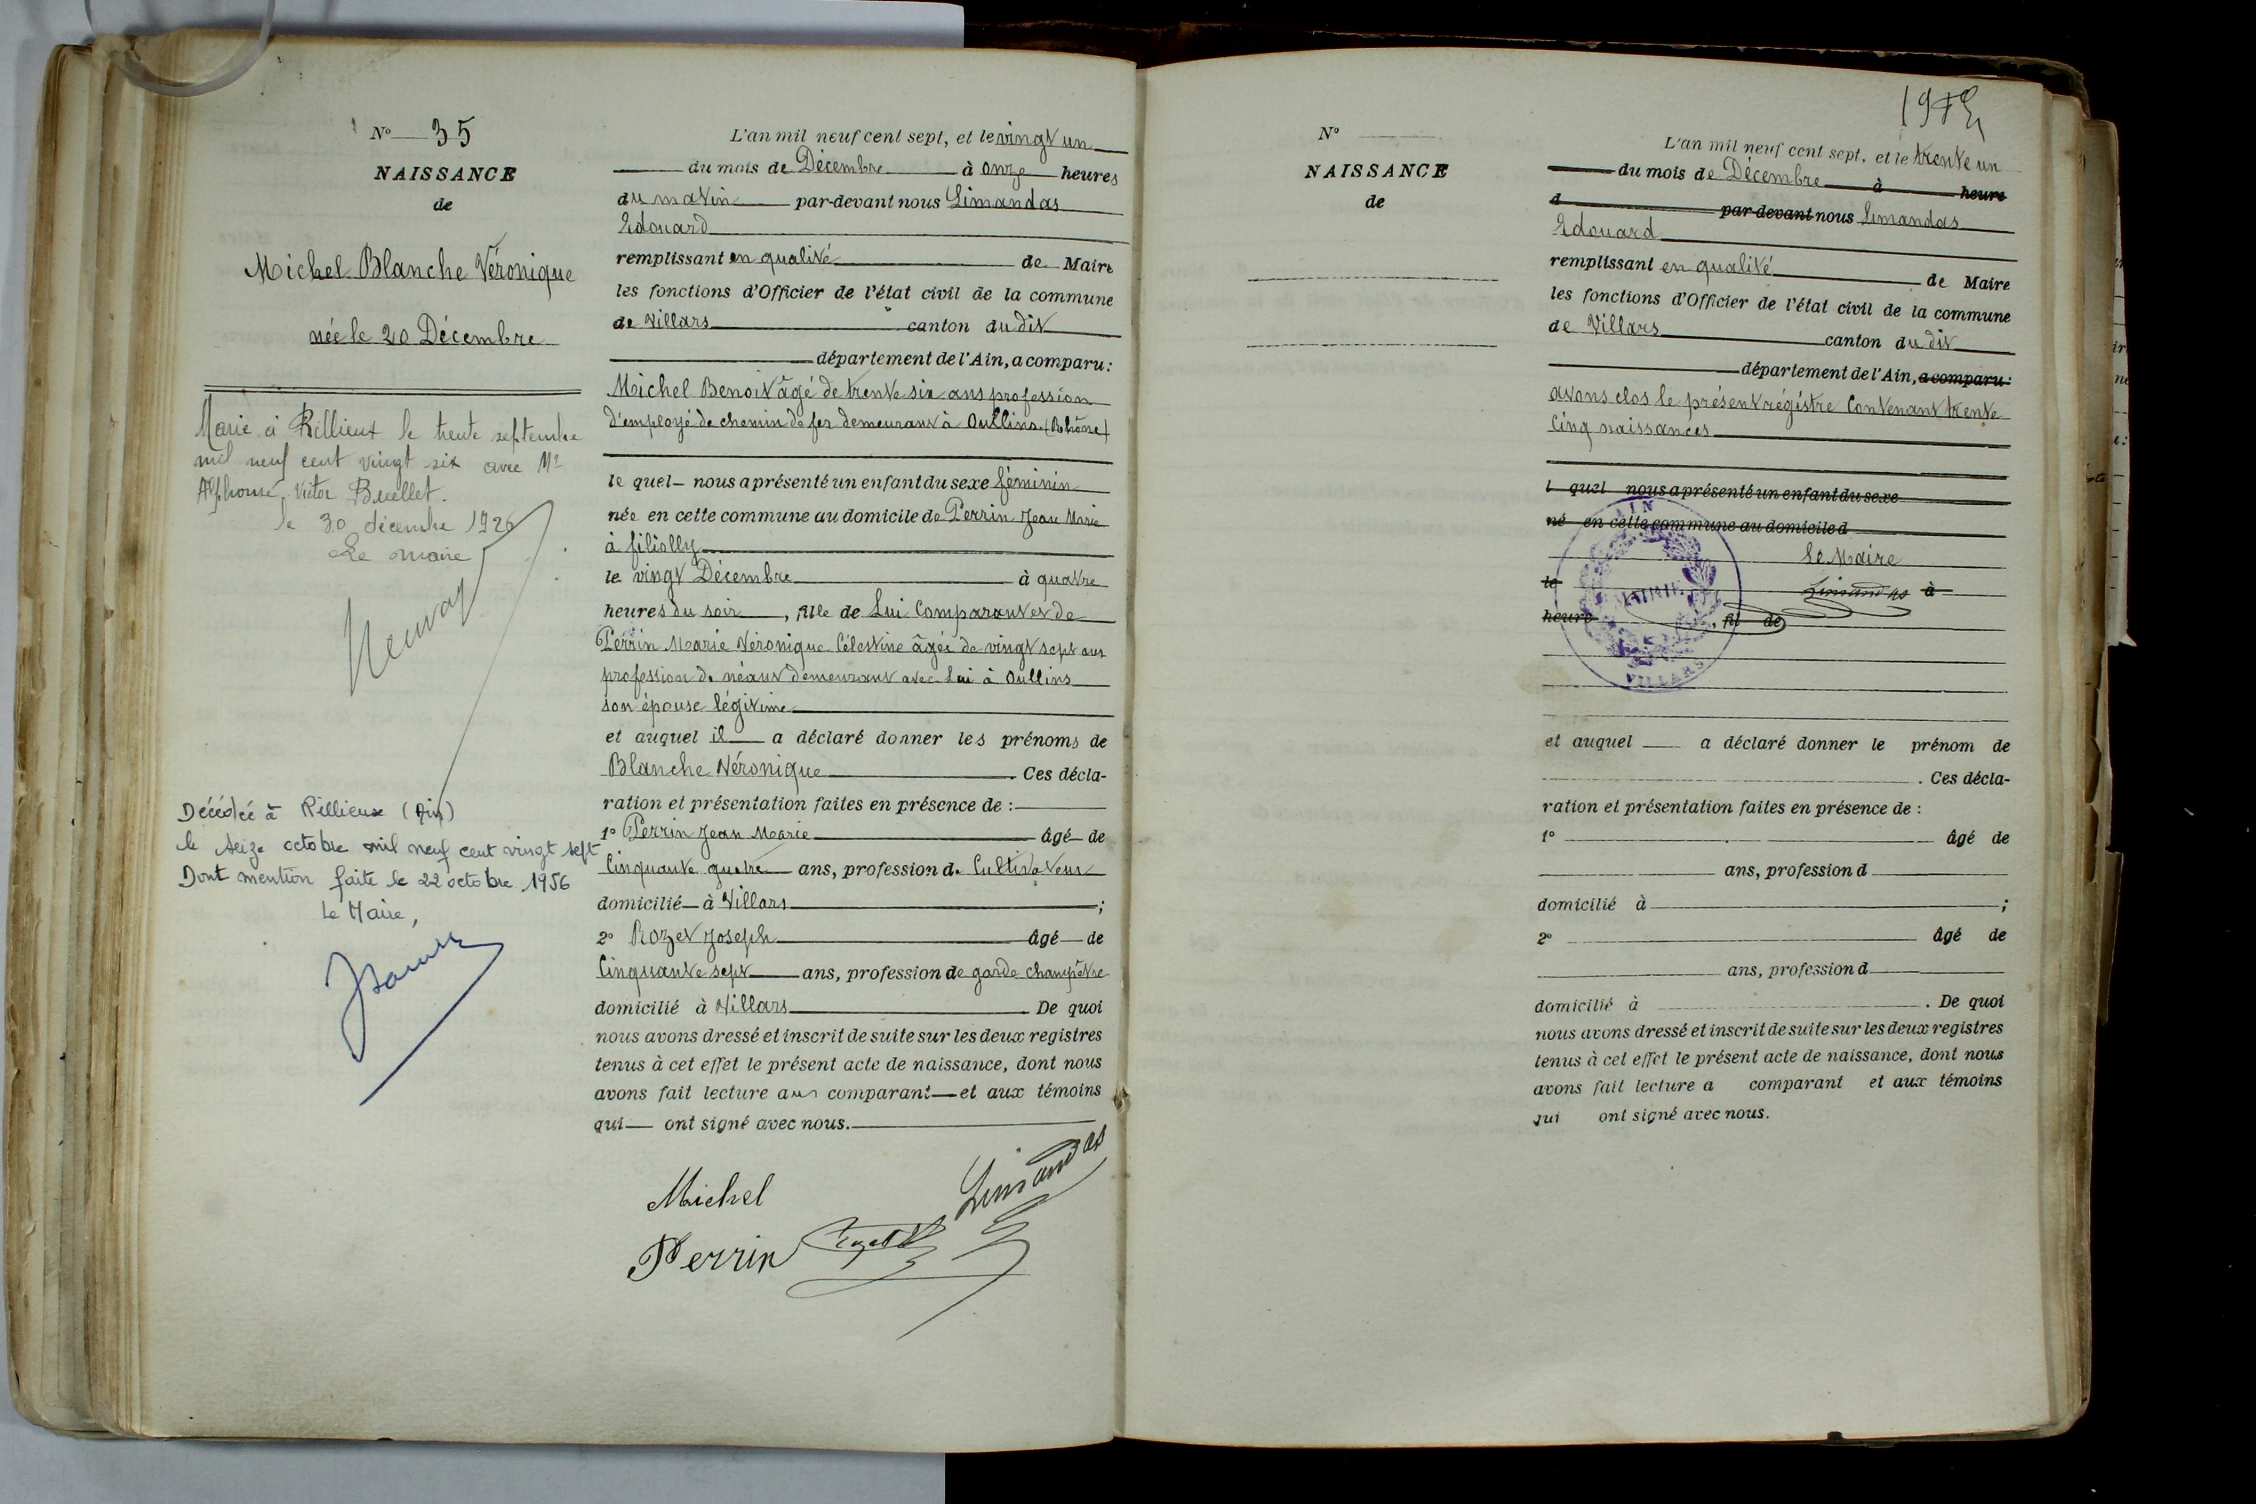 N° 35
NAISSANCE
de
Michel Blanche Véronique
née le 20 Décembre
Marié à Rillieux le trente septembre
mil neuf cent vingt six avec Mr
Alphonse, Victor Buellet.
le 30 décembre 1926
Le maire
Décédée à Rillieux (Ain)
le seize octobre mil neuf cent vingt sept
Dont mention faite le 22 octobre 1956
Le Maire,
L'an mil neuf cent sept, et le vingt un
du mois de Décembre à onze heures
du matin par-devant nous Limandas
Edouard
remplissant en qualité de Maire
les fonctions d'Officier de l'état civil de la commune
de Villars canton du dit
département de l'Ain, a comparu:
Michel Benoit âgé de trente six ans profession
d'employé de chemin de fer demeurant à Oullins (Rhône)
le quel nous a présenté un enfant du sexe féminin
née en cette commune au domicile de Perrin Jean Marie
à filiolly
le vingt Décembre à quatre
heures du soir, fille de Lui Comparant et de
Perrin Marie Véronique Célestine âgée de vingt sept ans
profession de néant demeurant avec Lui à Oullins
son épouse légitime
et auquel il a déclaré donner les prénoms de
Blanche Véronique. Ces décla-
ration et présentation faites en présence de :
1° Perrin Jean Marie âgé de
Cinquante quatre ans, profession de Cultivateur
domicilié à Villars ;
2° Rozet Joseph âgé de
Cinquante sept ans, profession de garde champêtre
domicilié à Villars. De quoi
nous avons dressé et inscrit de suite sur les deux registres
tenus à cet effet le présent acte de naissance, dont nous
avons fait lecture au comparant et aux témoins
qui ont signé avec nous.
Michel
Limandas
Perrin
N°
NAISSANCE
de
L'an mil neuf cent sept, et le trente un
du mois de Décembre à heure
d par-devant nous Limandas
Edouard
remplissant en qualité de Maire
les fonctions d'Officier de l'état civil de la commune
de Villars canton du dit
département de l'Ain, a comparu:
avons clos le présent régistre Contenant trente
Cinq naissances
l quel nous a présenté un enfant du sexe
né en cette commune au domicile d
Le Maire
le Limandas à
heure , fil de
AIN
MAIRIE
VILLARS
et auquel a déclaré donner le prénom de
. Ces décla-
ration et présentation faites en présence de :
1° âgé de
ans, profession d
domicilié à ;
2° âgé de
ans, profession d
domicilié à . De quoi
nous avons dressé et inscrit de suite sur les deux registres
tenus à cet effet le présent acte de naissance, dont nous
avons fait lecture a comparant et aux témoins
qui ont signé avec nous.